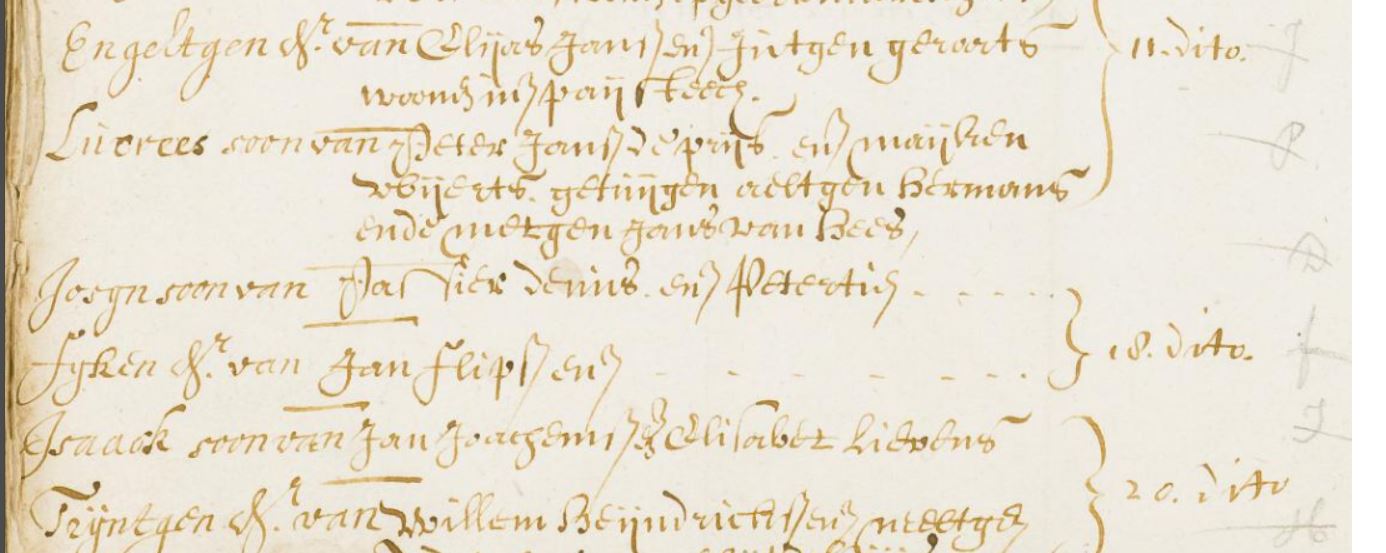 Engeltgen dr. van Elijas Jans en Jutgen gerarts 11. dito.
woond in paij steech.
Lucrees soon van Peter Jans de prijs. en maijken
wijerts. getuijgen aeltgen Hermans
ende metgen Jans van Hees,
Joegn soon van Passier denis. en Petertie
Fyken dr. van Jan flips en 18. dito.
Isaack soon van Jan Joachems en Elisabet Lievens
Tryntgen dr. van willem Heijndricks en neeltge 20. dito